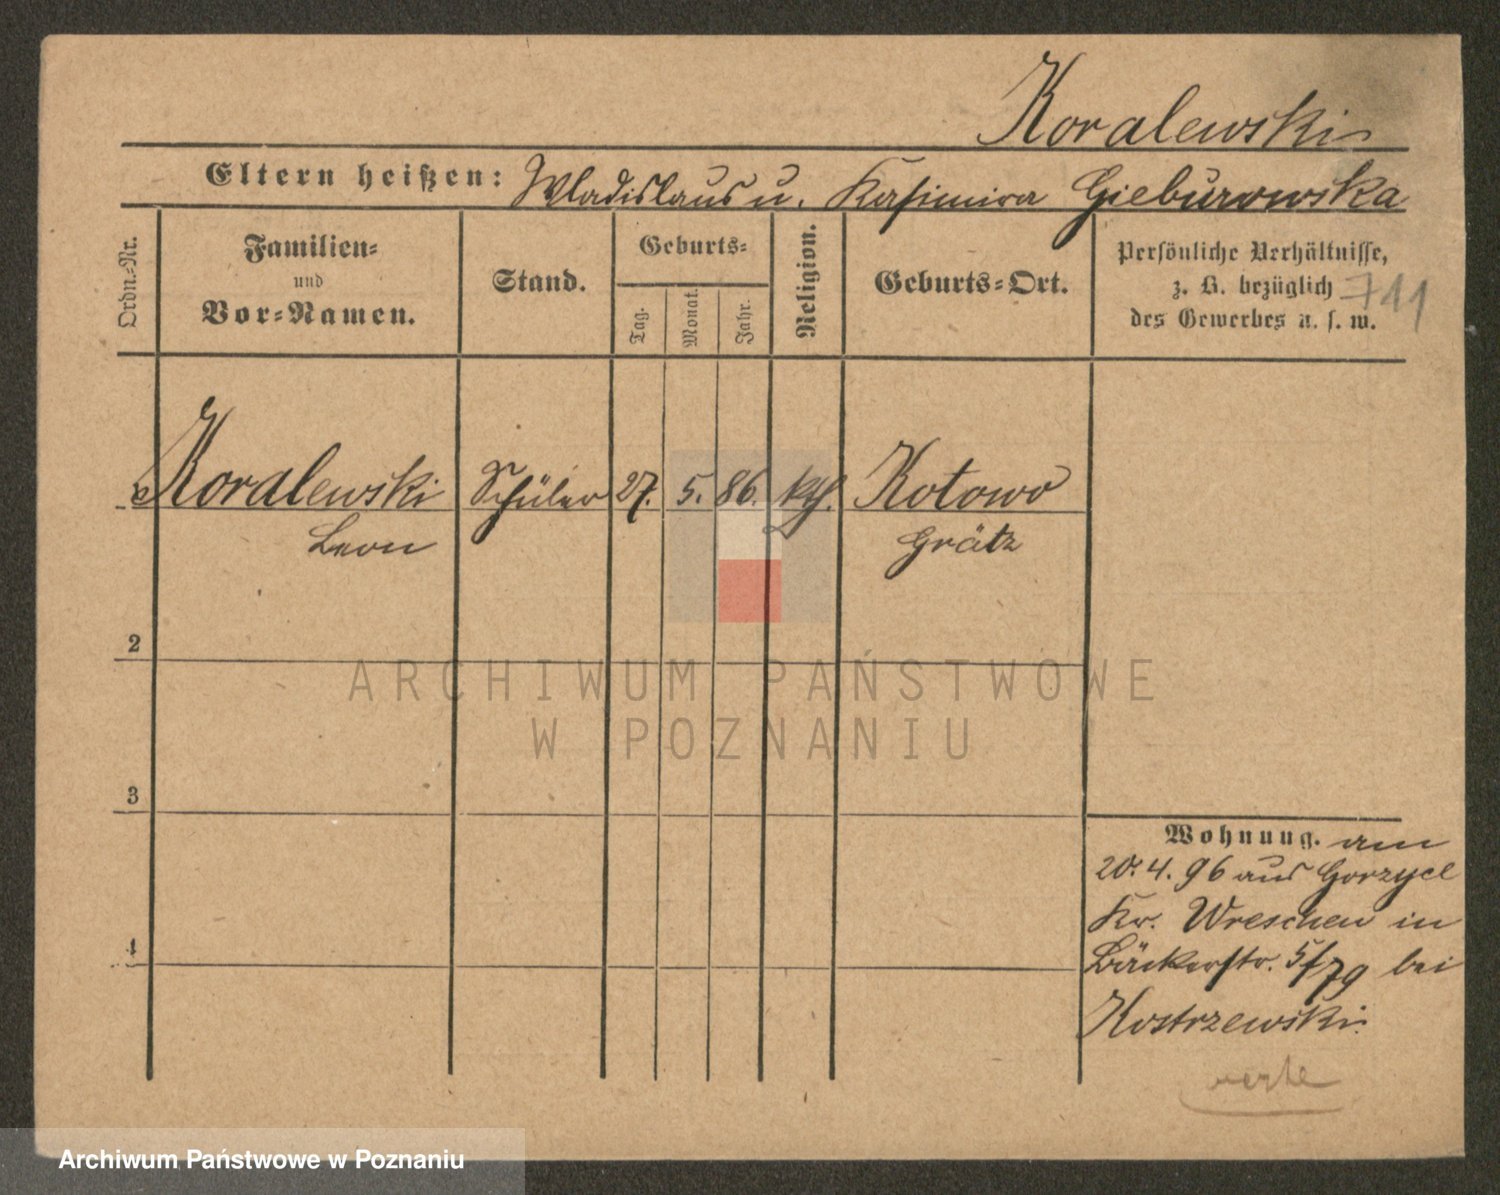 Koralewski
Eltern heißen: Wladislaus u. Kasimira Gieburowska
Ordn.-Nr.
Familien-
und
Vor-Namen.
Stand.
Geburts-
Tag.
Monat.
Jahr.
Religion.
Geburts-Ort.
Persönliche Verhältnisse,
z. B. bezüglich
des Gewerbes u. s. w.
711
Koralewski Schüler 27. 5. 86. kth. Kotowo
Leon Grätz
2
ARCHIWUM PAŃSTWOWE
W POZNANIU
3
Wohnung. am
20.4.96 aus Gorzyce
Kr. Wreschen in
4
Bäckerstr. 5/79 bei
Kostrzewski.
verte
Archiwum Państwowe w Poznaniu